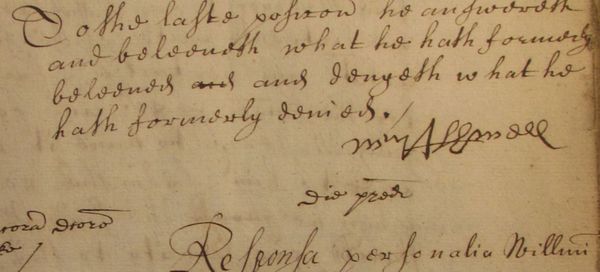 To the laste posicon he answereth
and beleeveth what he hath formerly
beleeved and and denyeth what he
hath formerly denied.
Wm Ashwell
die pred
Responsa personalia Willmi